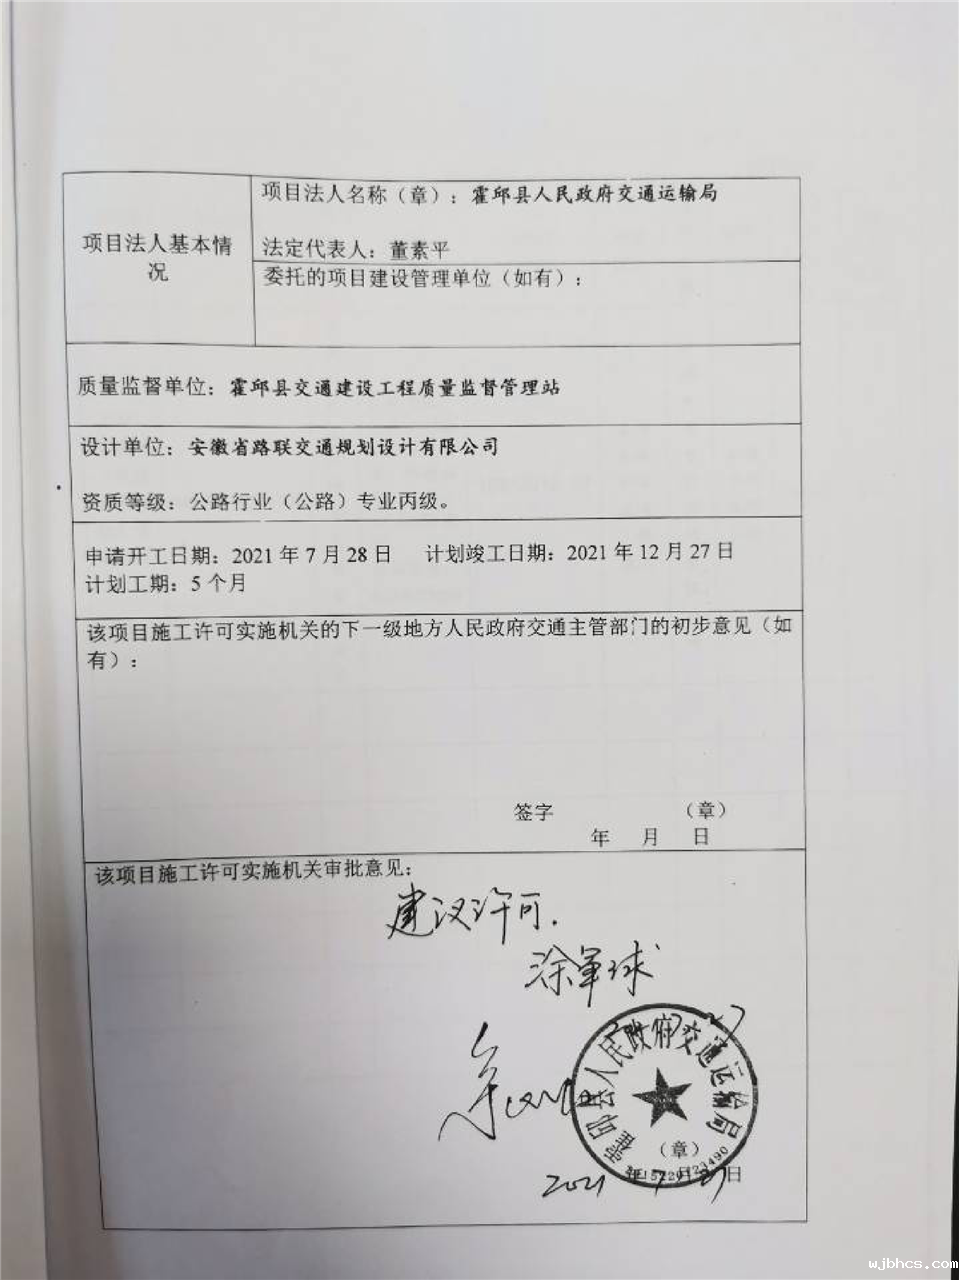 项目法人基本情
况
项目法人名称（章）：霍邱县人民政府交通运输局
法定代表人：董素平
委托的项目建设管理单位（如有）：
质量监督单位：霍邱县交通建设工程质量监督管理站
设计单位：安徽省路联交通规划设计有限公司
资质等级：公路行业（公路）专业丙级。
申请开工日期：2021 年 7 月 28 日 计划竣工日期：2021 年 12 月 27 日
计划工期：5 个月
该项目施工许可实施机关的下一级地方人民政府交通主管部门的初步意见（如
有）：
签字 （章）
年 月 日
该项目施工许可实施机关审批意见：
建议许可.
涂军球
霍邱县人民政府交通运输局
（章）
2021 年 7 月 27 日
wjbhcs.com